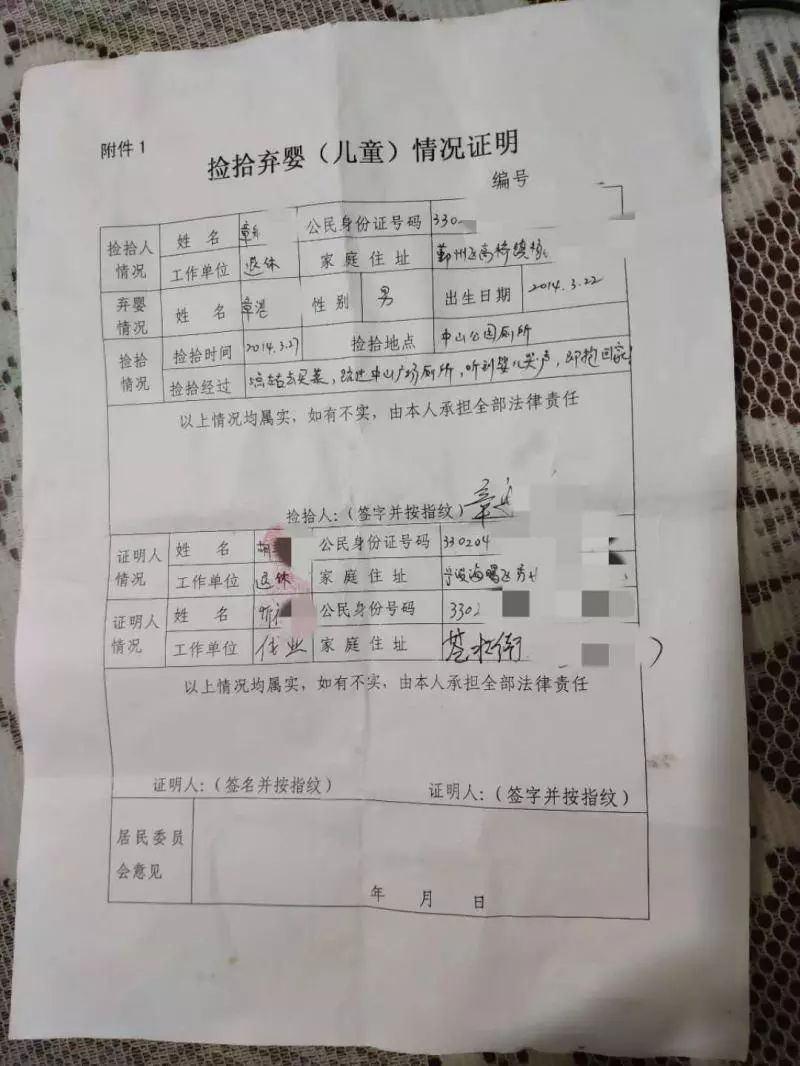 附件1
捡拾弃婴（儿童）情况证明
编号
捡拾人情况 姓名 章 公民身份证号码 330
工作单位 退休 家庭住址 鄞州区高桥镇
弃婴情况 姓名 章港 性别 男 出生日期 2014.3.22
捡拾情况 捡拾时间 2014.3.27 捡拾地点 中山公园厕所
捡拾经过 5点左右去买菜，路过中山广场厕所，听到婴儿哭声，即抱回家
以上情况均属实，如有不实，由本人承担全部法律责任
捡拾人：（签字并按指纹）章
证明人情况 姓名 胡 公民身份证号码 330204
工作单位 退休 家庭住址 宁波海曙区
证明人情况 姓名 忻 公民身份号码 3302
工作单位 家庭住址
以上情况均属实，如有不实，由本人承担全部法律责任
证明人：（签名并按指纹） 证明人：（签字并按指纹）
居民委员会意见
年 月 日